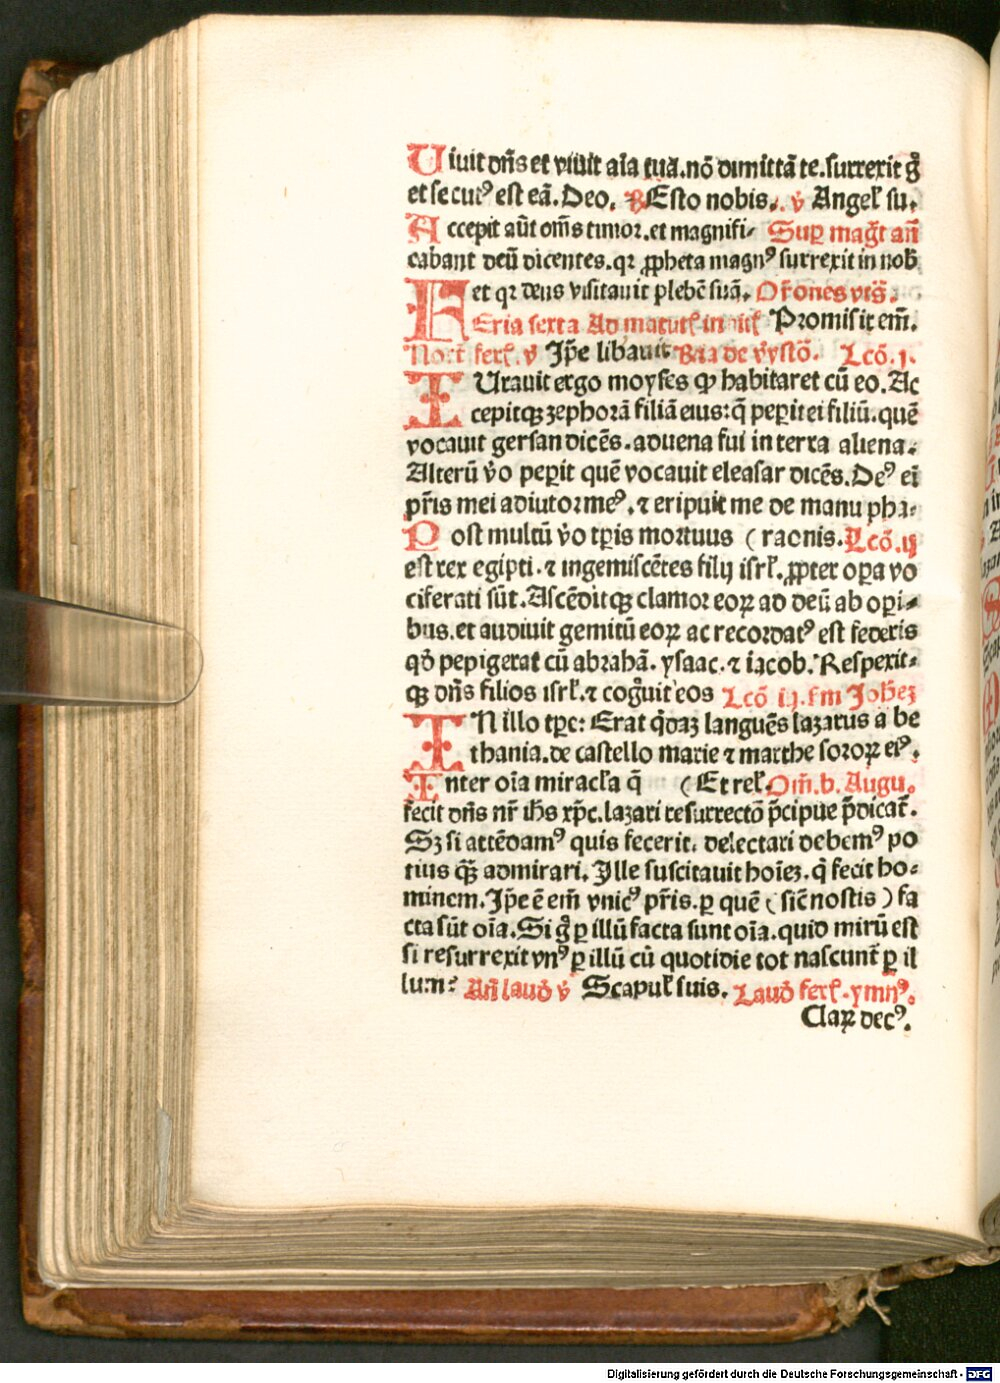 Uiuit dn̄s et viuit aīa tua.nō dimittā te.surrexit gͦ
et secutꝰ est eā.Deo. ℟ Esto nobis. v̓ Angel̓ su.
Accepit aūt om̄s timor.et magnifi- Sup̲ mag̓t an̄
cabant deū dicentes.qꝛ ꝓpheta magnꝰ surrexit in nob̄
et qꝛ deus visitauit plebē suā. Or̄ones vts̄.
FEria sexta Ad matut̓ in Promisit em̄.
Noct̓ ferl̓.v̓ Ip̄e libauit Bn̄a de v̓ysto̅. Lcō.j.
IUrauit ergo moyses ꝙ habitaret cū eo.Ac
cepitqꝫ zephorā filiā eius:q̄ peꝑit ei filiū.quē
vocauit gersan dicēs.aduena fui in terra aliena.
Alterū v̓o peꝑit quē vocauit eleasar dicēs.Deꝰ ei̅
pr̄is mei adiutor meꝰ.⁊ eripuit me de manu pha-
Post multū v̓o tꝑis mortuus ( raonis. Lcō.ij
est rex egipti.⁊ ingemiscētes filij isrl̓.ꝓpter oꝑa vo
ciferati sūt.Ascēditqꝫ clamor eoꝝ ad deū ab oꝑi-
bus.et audiuit gemitū eoꝝ ac recordatꝰ est federis
qd̓ pepigerat cū abrahā.ysaac.⁊ iacob.Respexit-
qꝫ dn̄s filios isrl̓.⁊ cog̓uit eos Lcō iij.s̄m Joh̄eꝫ
IN illo tꝑe: Erat q̓daꝫ languēs lazarus a be
thania.de castello marie ⁊ marthe soroꝝ eiꝰ.
Inter oīa miracl̓a q̄ ( Et rel̓.Om̄.b.Augu.
fecit dn̄s nr̄ ih̄s xp̄c.lazari resurrectō p̄cipue p̄dicat̓.
Sꝫ si attēdamꝰ quis fecerit. delectari debemꝰ po
tius qꝫ̄ admirari.Ille suscitauit hoīeꝫ.q̓ fecit ho-
minem.Ip̄e ē em̄ vnicꝰ pr̄is.ꝑ quē ( sic̄ nostis ) fa
cta sūt oīa.Si gͦ ꝑ illū facta sunt oīa.quid mirū est
si resurrexit vnꝰ ꝑ illū cū quotidie tot nascunt̓ ꝑ il
lum? An̄ laud̓ v̓ Scapul̓ suis. Laud̓ ferl̓.ymnꝰ.
Claꝝ decꝰ.
Digitalisierung gefördert durch die Deutsche Forschungsgemeinschaft - DFG